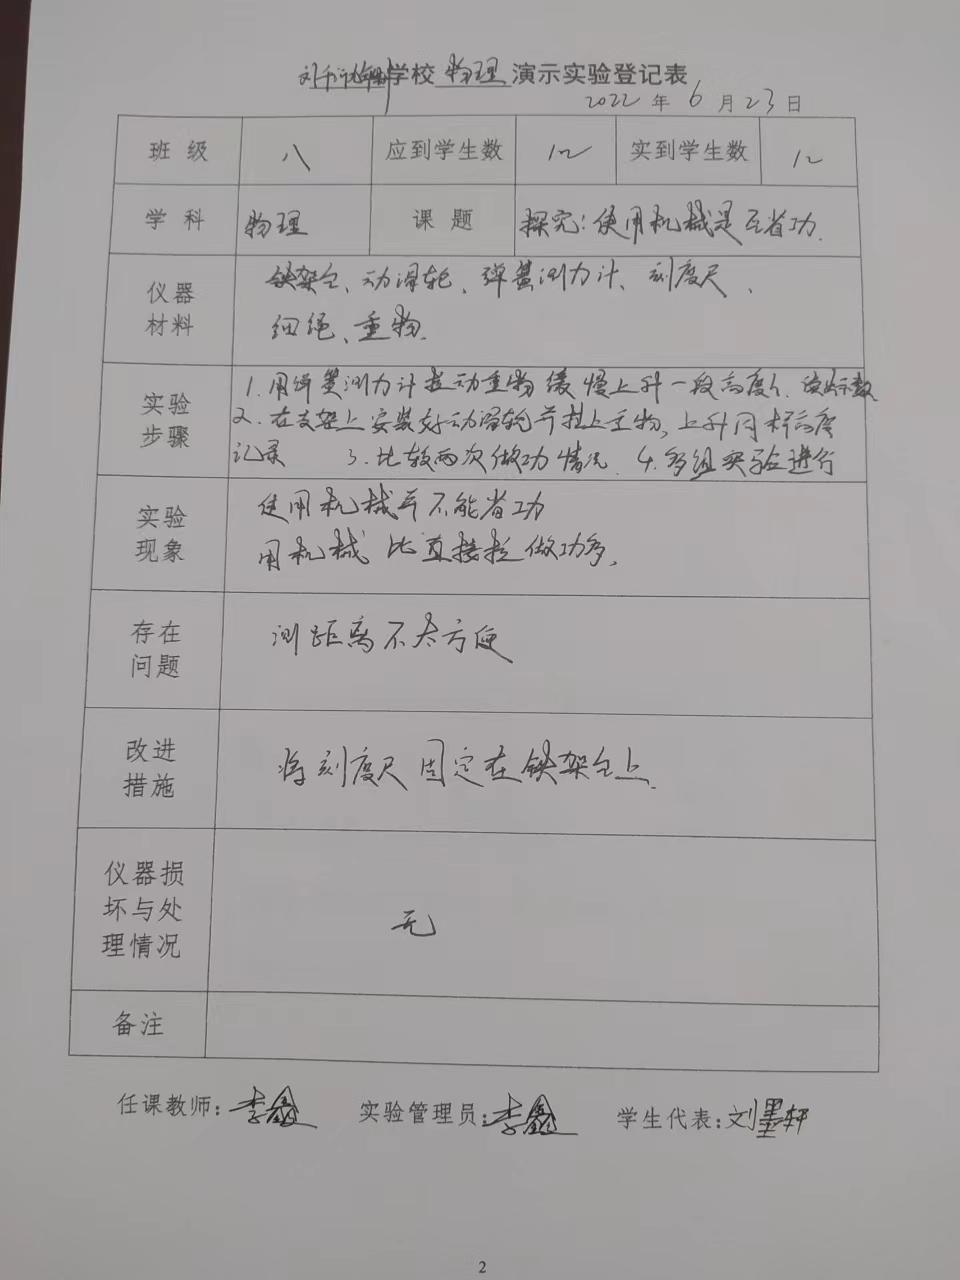 学校 物理 演示实验登记表
2022 年 6 月 23 日
班 级 八 应到学生数 12 实到学生数 12
学 科 物理 课 题 探究:使用机械是否省功.
仪器材料 铁架台、动滑轮、弹簧测力计、刻度尺、
细绳、重物.
实验步骤 1.用弹簧测力计拉动重物缓慢上升一段高度h、读出示数
2.在支架上安装好动滑轮并挂上重物,上升同样高度
记录 3.比较两次做功情况. 4.多组实验进行
实验现象 使用机械并不能省功
用机械比直接拉做功多.
存在问题 测距离不太方便
改进措施 将刻度尺固定在铁架台上.
仪器损坏与处理情况 无
备注
任课教师:李鑫 实验管理员:李鑫 学生代表:刘墨轩
2